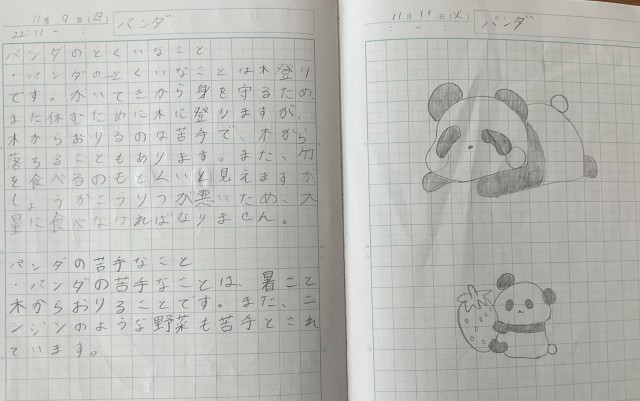 11月9日(日)
22:11 - :
パンダ
パンダのとくいなこと
・パンダのとくいなことは木登り
です。がいてきから身を守るため、
また休むために木に登りますが、
木からおりるのは苦手で、木から
落ちることもあります。また、竹
を食べるのもとくいと見えますが
しょうかこうりつが悪いため、大
量に食べなければなりません。
パンダの苦手なこと
・パンダの苦手なことは、暑こと
木からおりることです。また、ニ
ンジンのような野菜も苦手とこれ
ています。
11月11日(火)
: - :
パンダ